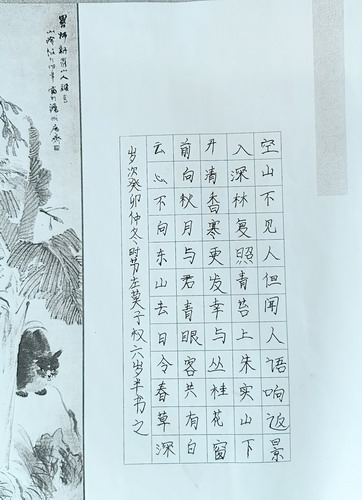 空山不见人但闻人语响返景
入深林复照青苔上朱实山下
开清香寒更发幸与丛桂花窗
前向秋月与君青眼客共有白
云心不向东山去日今春草深
岁次癸卯仲冬时节左子权六岁半书之